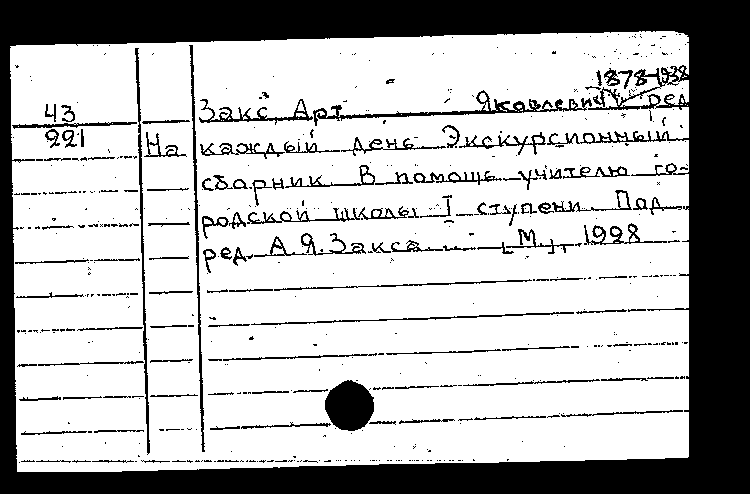 1878-1938
43 Закс, Арт Яковлевич ред
221 На каждый день Экскурсионный
сборник В помощь учителю го-
родской школы I ступени. Под
ред. А.Я.Закса... [М.], 1928